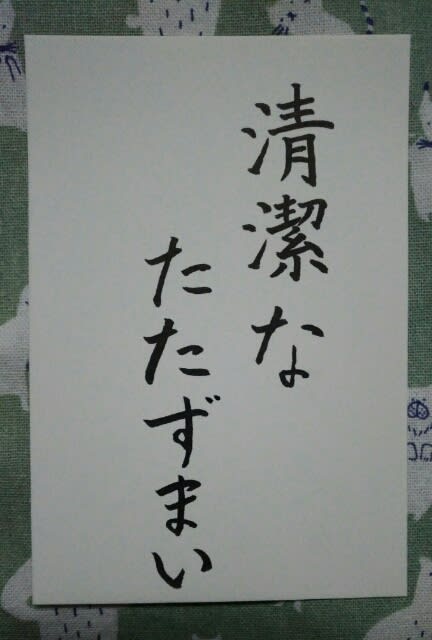 清潔な
たたずまい